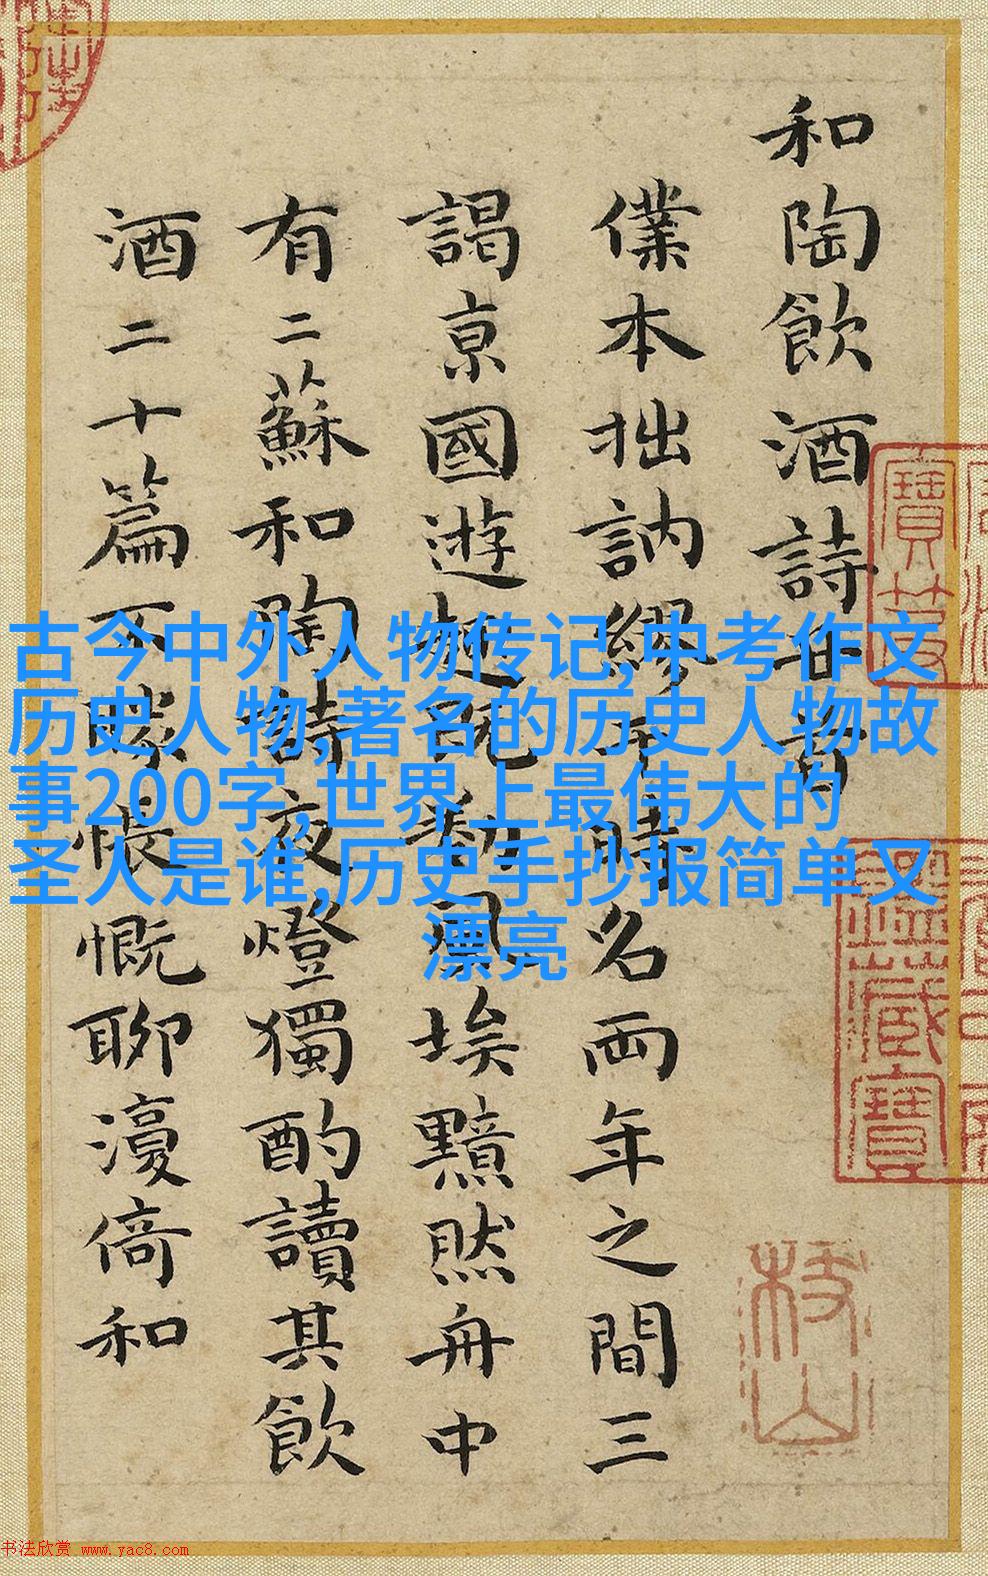 和陶飲酒詩廿首
僕本拙訥繆時名兩年之間三
謁京國遊埃黯然舟中
有二蘇和陶詩夜燈獨酌讀其飲
酒二十篇不勝悵慨聊濅倚和
古今中外人物传记,中考作文
历史人物,著名的历史人物故
事200字,世界上最伟大的
圣人是谁,历史手抄报简单又
漂亮
書法欣赏 www.yac8.com